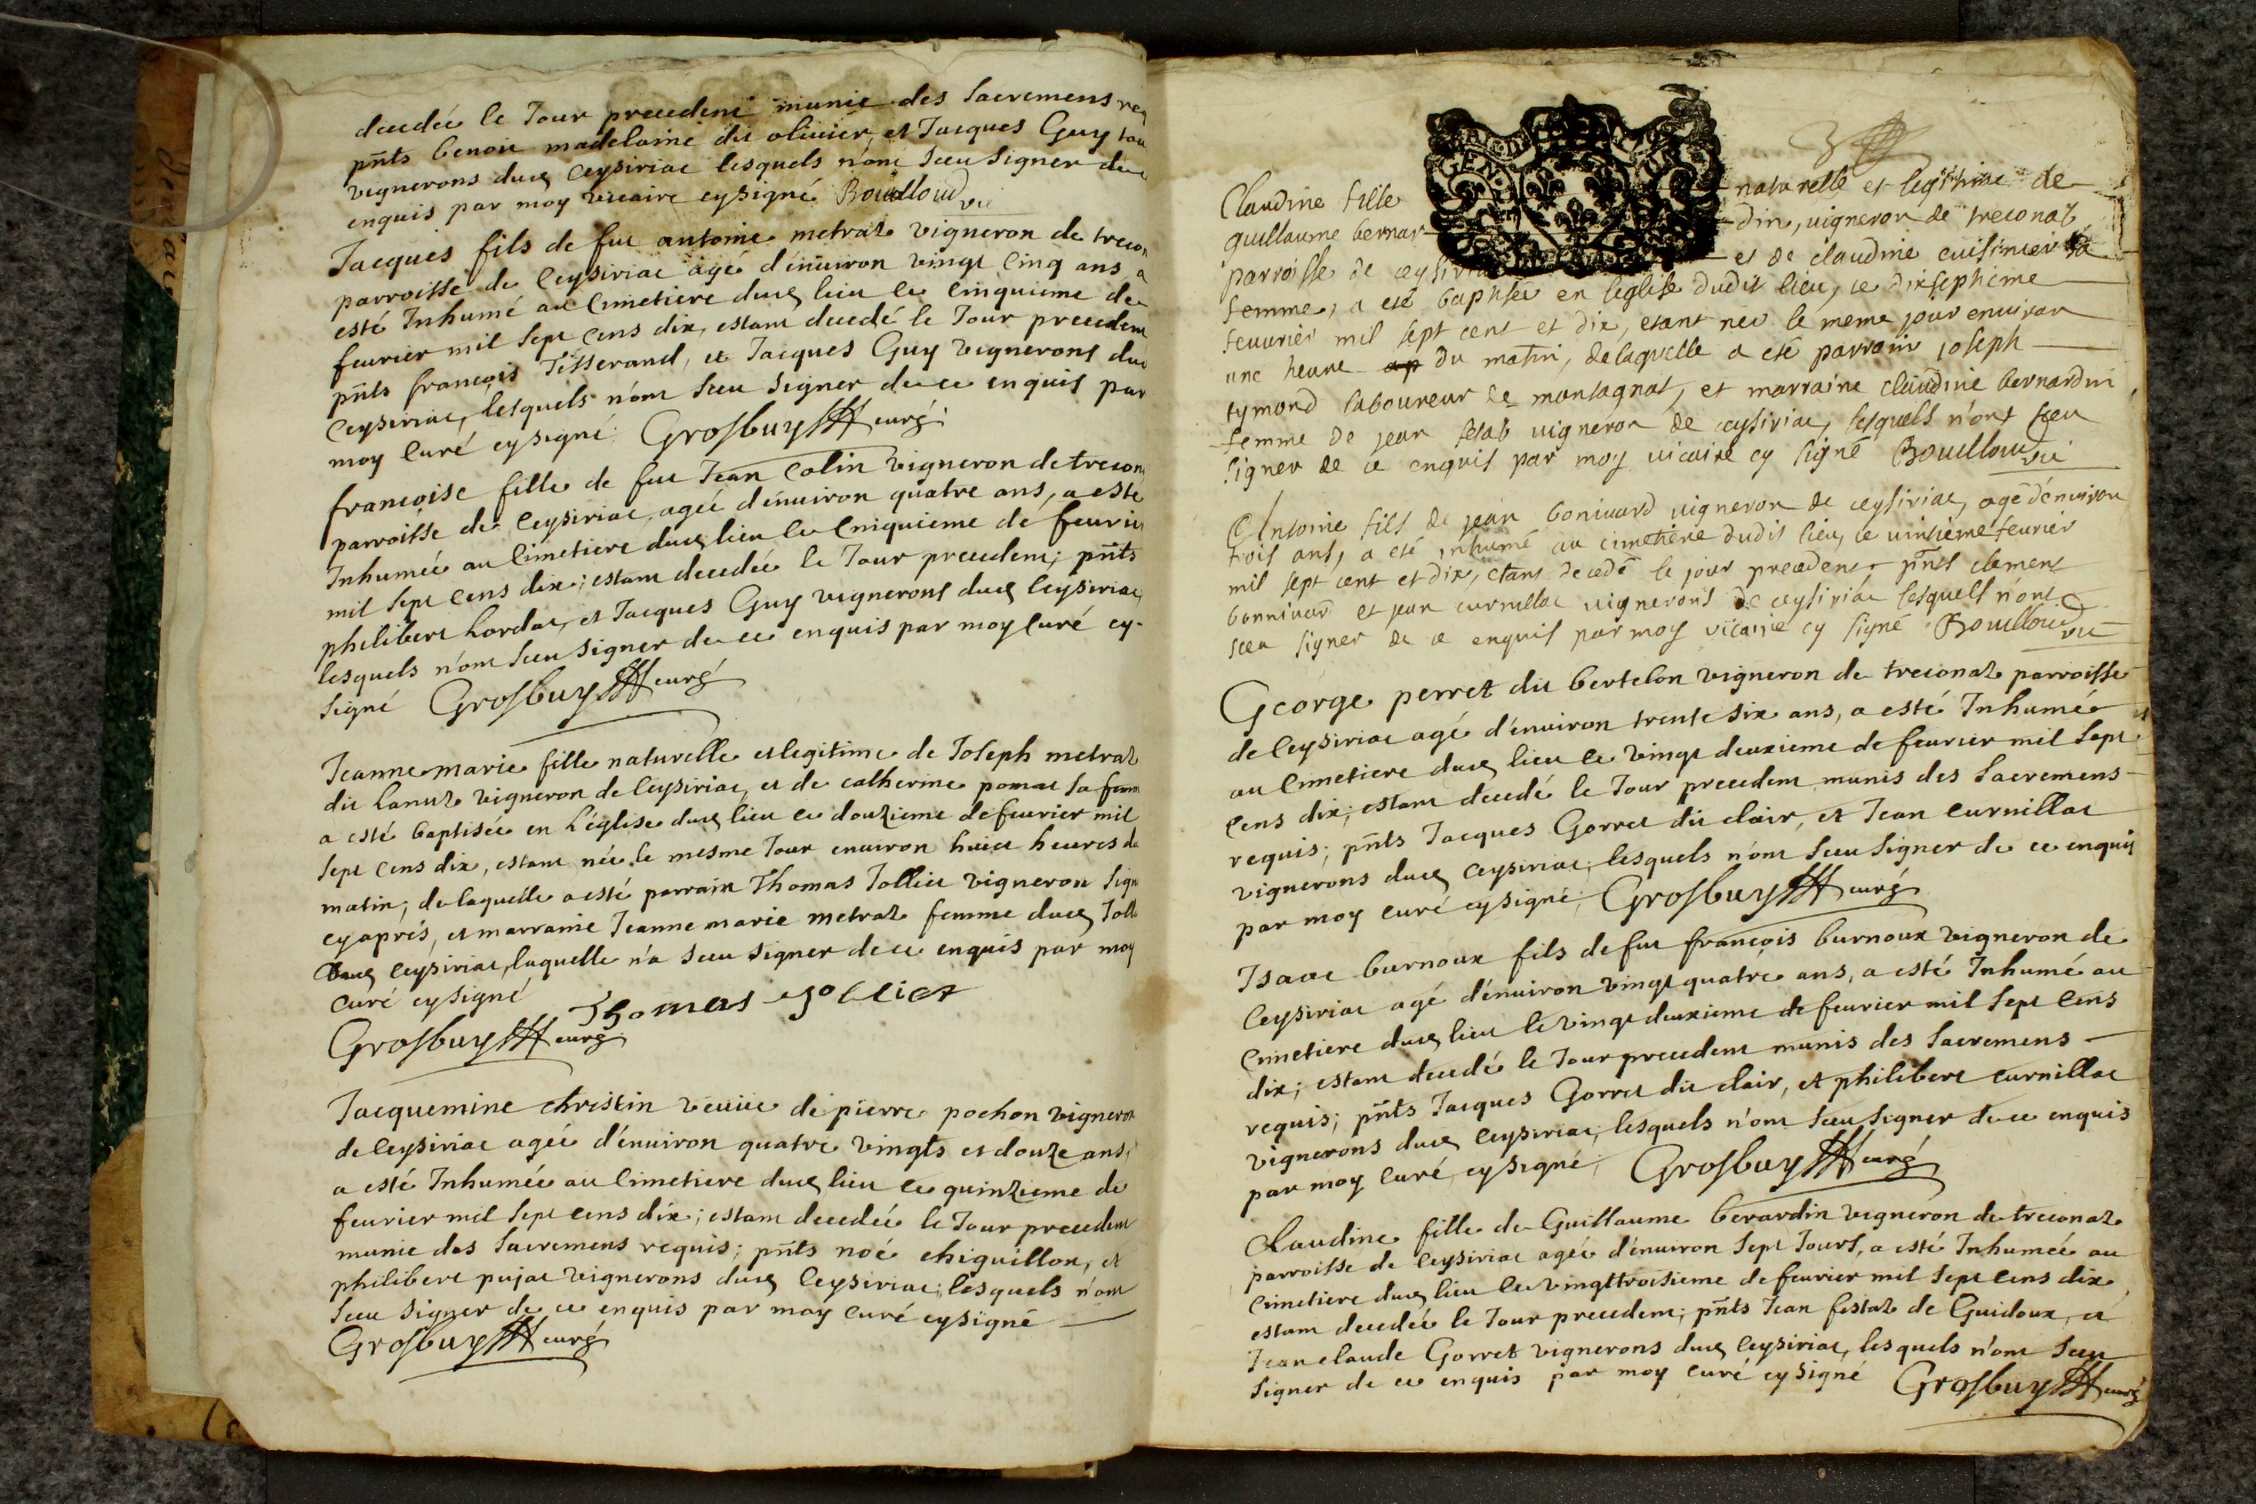 decedée le Jour precedent munie des sacremens req
pn̄ts benoit madelaine dit olivier, et Jacques Guy tou
vignerons dud ceysiriac lesquels n'ont sceu signer de ce
enquis par moy vicaire cysigné Bouilloud vic
Jacques fils de fut antoine metraz vigneron de trecon
parroisse de Ceysiriac agé d'environ vingt Cinq ans a
esté Inhumé au Cimetiere dud lieu le Cinquieme de
fevrier mil sept cens dix, estant decedé le Jour precedent
pn̄ts françois Tisserand, et Jacques Guy vignerons dud
Ceysiriac, lesquels n'ont sceu signer de ce enquis par
moy Curé cysigné Grosbuy curé
françoise fille de fut Jean Colin vigneron de trecon
parroisse de Ceysiriac, agée d'environ quatre ans, a esté
Inhumée au Cimetiere dud lieu le Cinquieme de fevrier
mil sept cens dix; estant decedée le Jour precedent; pn̄ts
philibert Lordat, et Jacques Guy vignerons dud Ceysiriac,
lesquels n'ont sceu signer de ce enquis par moy Curé cy-
signé Grosbuy curé
Jeanne marie fille naturelle et legitime de Joseph metraz
dit Lanuz vigneron de Ceysiriac, et de catherine pomat sa femm
a esté baptisée en L'église dud lieu le douzieme de fevrier mil
sept cens dix, estant née le mesme Jour environ huict heures du
matin; de laquelle a esté parrain Thomas Jolliet vigneron sign
cy aprés, et marraine Jeanne marie metraz femme dud Joll
dud ceysiriac, laquelle n'a sceu signer de ce enquis par moy
Curé cysigné Thomas Jolliet
Grosbuy curé
Jacquemine christin veuve de pierre pochon vigneron
de Ceysiriac agée d'environ quatre vingts et douze ans,
a esté Inhumée au Cimetiere dud lieu le quinzieme de
fevrier mil sept cens dix; estant decedée le Jour precedent
munie des sacremens requis; pn̄ts noé chiguillon, et
philibert pujat vignerons dud Ceysiriac; lesquels n'ont
sceu signer de ce enquis par moy Curé cysigné
Grosbuy curé
GEN
Claudine fille naturelle et legitime de
guillaume bernar din, vigneron de treconaz
parroisse de ceysiria et de claudine cuisinier sa
femme, a eté baptisée en leglise dudit lieu, ce dixsepheme
feuvrier mil sept cent et dix, etant neé le meme jour environ
une heure ap du matin, de laquelle a eté parrain joseph
tymond laboureur de montagnat, et marraine claudine bernardin
femme de jean fetab vigneron de ceysiriac, lesquels n'ont sceu
signer de ce enquis par moy vicaire cy signé Bouilloud vic
Antoine fils de jean bonivard vigneron de ceysiriac, agé d'environ
trois ans, a eté inhumé au cimetiere dudit lieu, ce vintieme fevrier
mil sept cent et dix, etant decedé le jour precedent pn̄ts clement
bonnivard et jean curnillac vignerons de ceysiriac lesquels n'ont
sceu signer de ce enquis par moy vicaire cy signé Bouilloud vic
George perret dit bertelon vigneron de treconaz parroisse
de Ceysiriac agé d'environ trente six ans, a esté Inhumé
au Cimetiere dud lieu le vingt deuxieme de fevrier mil sept
cens dix; estant decedé le Jour precedent munis des sacremens
requis; pn̄ts Jacques Gorret dit clair, et Jean curnillat
vignerons dud ceysiriac; lesquels n'ont sceu signer de ce enquis
par moy curé cysigné; Grosbuy curé
Isaac burnoux fils de fut françois burnoux vigneron de
Ceysiriac agé d'environ vingt quatre ans, a esté Inhumé au
Cimetiere dud lieu le vingt deuxieme de fevrier mil sept Cens
dix; estant decedé le Jour precedent munis des sacremens
requis; pn̄ts Jacques Gorret dit clair, et philibert curnillat
vignerons dud ceysiriac; lesquels n'ont sceu signer de ce enquis
par moy Curé, cysigné; Grosbuy curé
Claudine fille de Guillaume berardin vigneron de treconaz
parroisse de Ceysiriac agée d'environ sept Jours, a esté Inhumée au
Cimetiere dud lieu le vingttroisieme de fevrier mil sept cens dix
estant decedée le Jour precedent; pn̄ts Jean festaz de Guidoux, et
Jean claude Gorret vignerons dud Ceysiriac, lesquels n'ont sceu
signer de ce enquis par moy curé cysigné Grosbuy curé